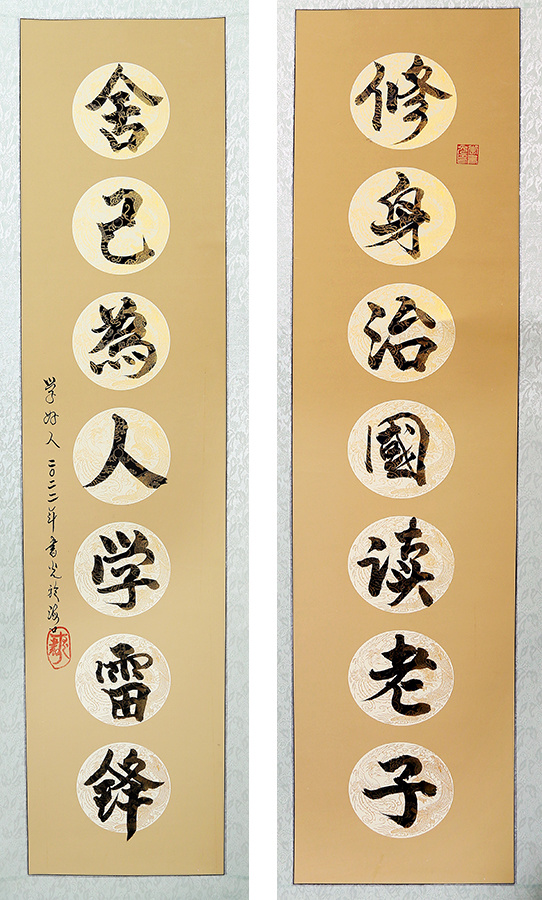 修身治國读老子
舍己為人学雷锋
学好人 二〇二二年書光於海口